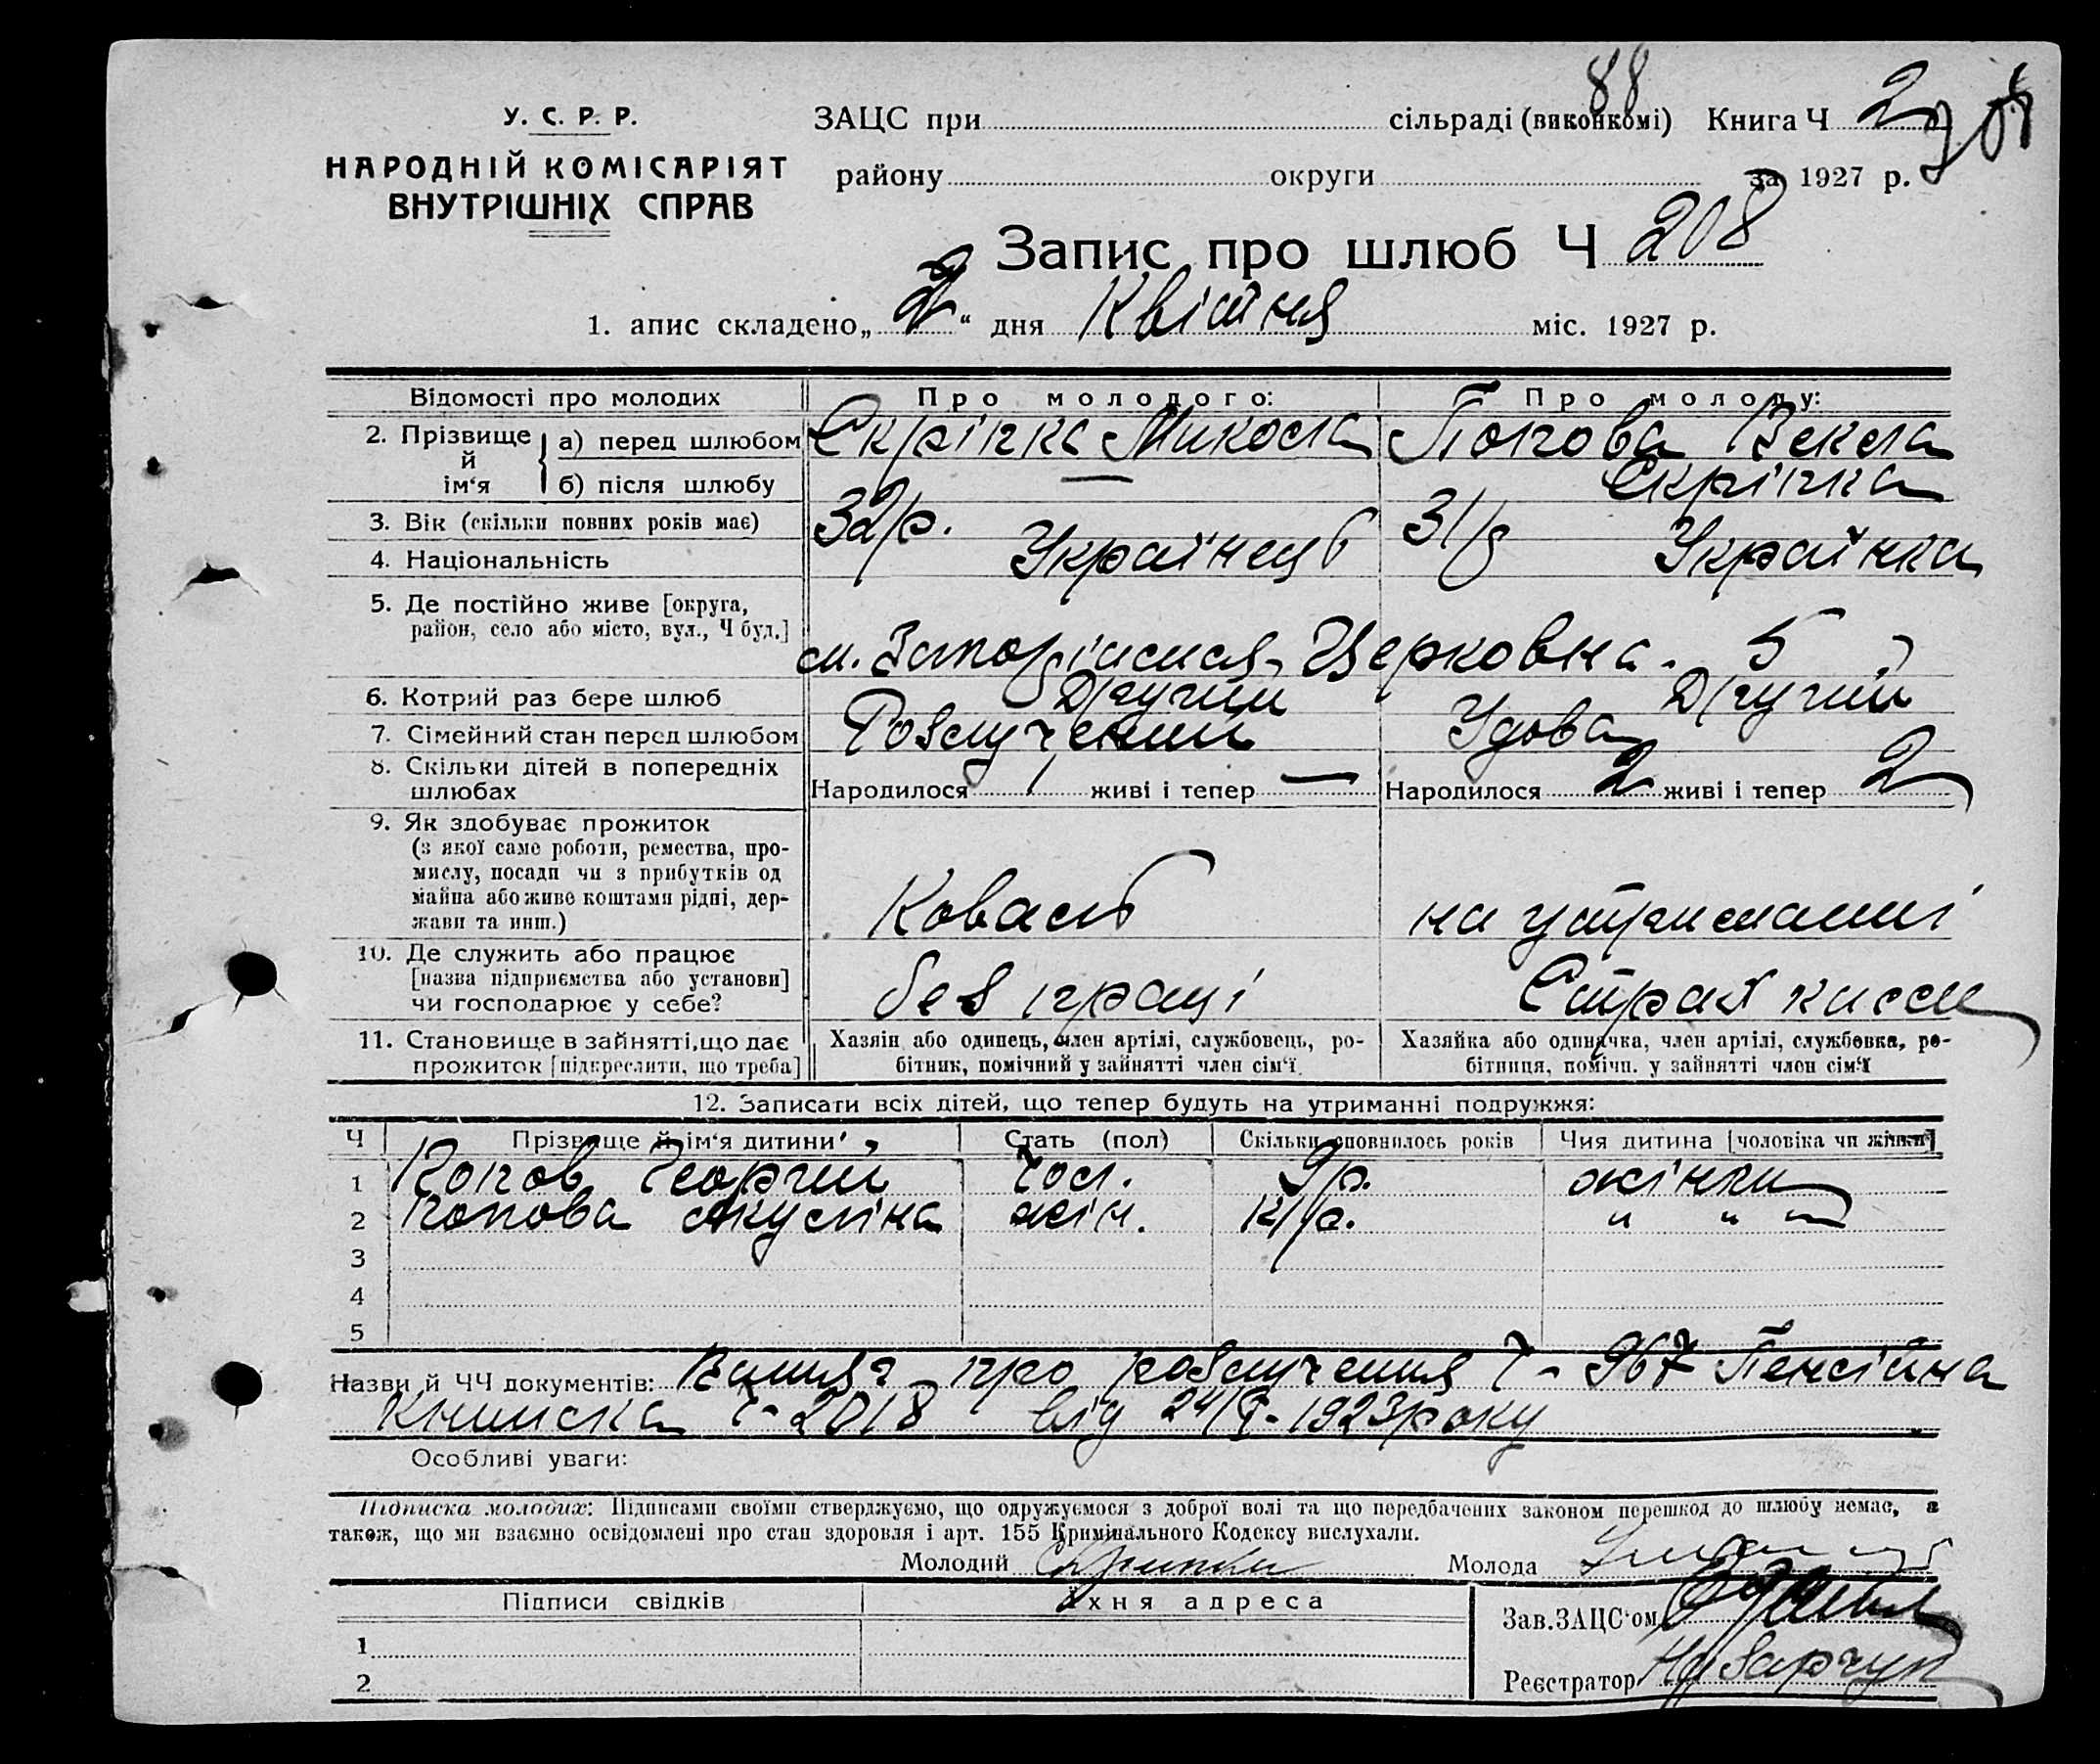 88
У. С. Р. Р.
НАРОДНІЙ КОМІСАРІЯТ
ВНУТРІШНІХ СПРАВ
ЗАЦС при сільраді (виконкомі) Книга Ч 2
208
району округи за 1927 р.
Запис про шлюб Ч 208
1. апис складено „2“ дня Квітня міс. 1927 р.
Відомості про молодих Про молодого: Про молоду:
2. Прізвище й ім‘я а) перед шлюбом Скріпка Микола Попова Векла
б) після шлюбу — Скріпка
3. Вік (скільки повних років має) 32/р. 31/р
4. Національність Українець Українка
5. Де постійно живе [округа,
район, село або місто, вул., Ч буд.]
м. Запоріжжя, Церковна. 5
6. Котрий раз бере шлюб Другий Другий
7. Сімейний стан перед шлюбом Розлучений Удова
8. Скільки дітей в попередніх
шлюбах Народилося 1 живі і тепер — Народилося 2 живі і тепер 2
9. Як здобуває прожиток
(з якої саме роботи, ремества, про-
мислу, посади чи з прибутків од
майна або живе коштами рідні, дер-
жави та инш.) Коваль на утриманні
10. Де служить або працює
[назва підприємства або установи]
чи господарює у себе? без праці Страх каси
11. Становище в зайнятті, що дає Хазяїн або одинець, член артілі, службовець, ро- Хазяйка або одиначка, член артілі, службовка, ро-
прожиток [підкреслити, що треба] бітник, помічний у зайнятті член сім‘ї. бітниця, помічн. у зайнятті член сім‘ї
12. Записати всіх дітей, що тепер будуть на утриманні подружжя:
Ч Прізвище й ім‘я дитини Стать (пол) Скільки сповнилось років Чия дитина [чоловіка чи жінки]
1 Попов Георгій чол. 9р. жінки
2 Попова Акуліна жін. 12/р. " " —
3
4
5
Назви й ЧЧ документів: Випис про розлучення Ч- 967 Пенсійна
Книжка Ч-2018 від 24/V-1923року
Особливі уваги:
Підписка молодих: Підписами своїми стверджуємо, що одружуємося з доброї волі та що передбачених законом перешкод до шлюбу немає, а
також, що ми взаємно освідомлені про стан здоровля і арт. 155 Кримінального Кодексу вислухали.
Молодий Скрипка Молода
Підписи свідків Їхня адреса
Зав.ЗАЦС‘ом
1
2
Реєстратор Назарчук